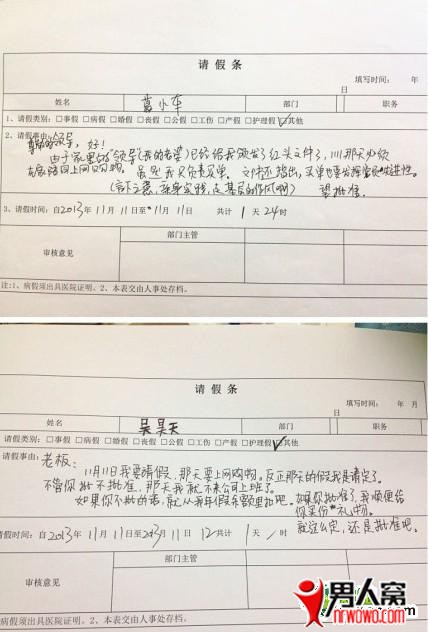 请假条
填写时间： 年
日
姓名 葛小车 部门 职务
1、请假类别：□事假 □病假 □婚假 □丧假 □公假 □工伤 □产假 □护理假 ☑其他
2、请假事由：
尊敬的领导，好！
由于家里的"领导"（我的老婆）已经给我颁发了红头文件了，11.11那天必须
在家陪同上网购物。虽然我只负责买单。文件还指出，买单也要发挥党员先进性。
（言下之意，亲身实践，这基层的作风啊） 望批准。
3、请假时间：自2013年11月11日至 11月11日 共计 1天24时
部门主管
审核意见
注：1、病假须出具医院证明。2、本表交由人事处存档。
请假条
填写时间： 年 月
日
姓名 吴昊天 部门
请假类别：□事假 □病假 □婚假 □丧假 □公假 □工伤 □产假 □护理假 ☑其他
请假事由：老板：
11月11日我要请假，那天要上网购物。反正那天的假我是请定了。
不管你批不批准，那天我就不来公司上班了。
如果你不批的话，就从我年假余额里扣吧。如果你批准了，我顺便给
你买份礼物。
就这么定，还是批准吧。
请假时间：自2013年11月11日至2013年11月12 共计1天 时
部门主管
审核意见
病假须出具医院证明。2、本表交由人事处存档。
男人窝
nrwowo.com